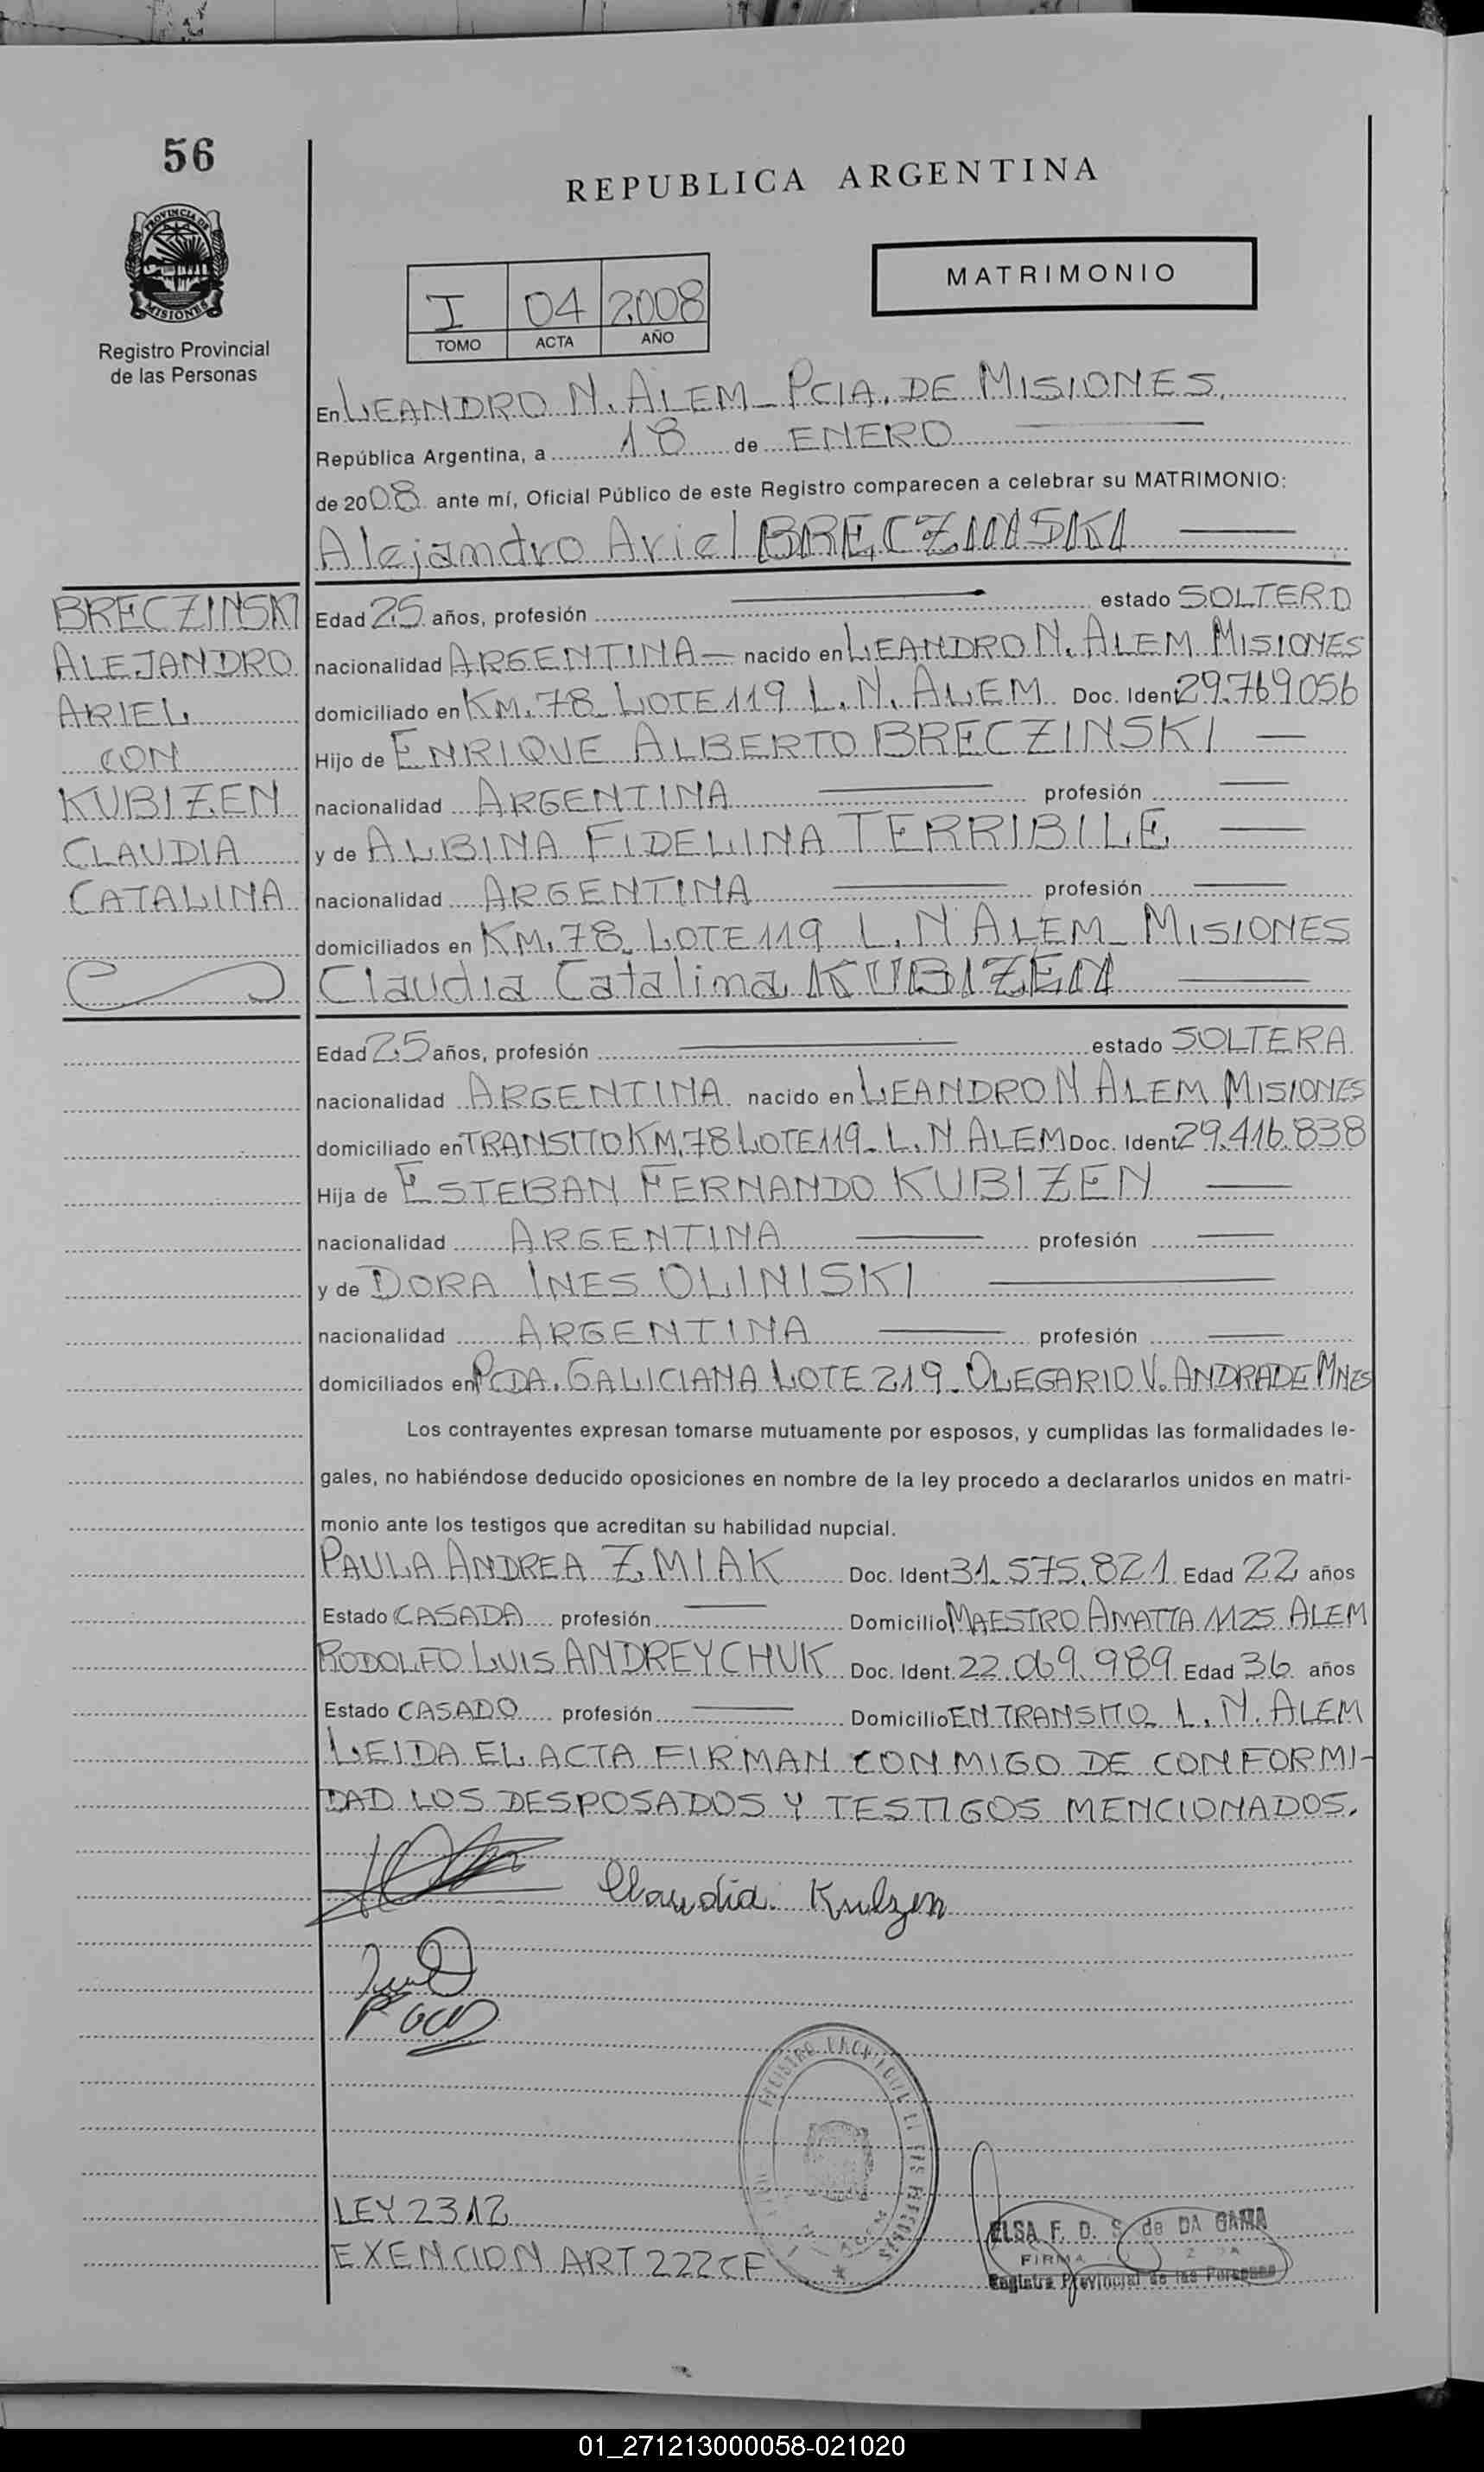 56
PROVINCIA DE
MISIONES
Registro Provincial
de las Personas
REPUBLICA ARGENTINA
MATRIMONIO
I 04 2008
TOMO ACTA AÑO
En LEANDRO N. ALEM - PCIA. DE MISIONES.
República Argentina, a 18 de ENERO
de 2008 ante mí, Oficial Público de este Registro comparecen a celebrar su MATRIMONIO:
Alejandro Ariel BRECZINSKI
BRECZINSKI
ALEJANDRO
ARIEL
CON
KUBIZEN
CLAUDIA
CATALINA
Edad 25 años, profesión estado SOLTERO
nacionalidad ARGENTINA nacido en LEANDRO N. ALEM MISIONES
domiciliado en KM. 78 - LOTE 119 L. N. ALEM Doc. Ident 29.769.056
Hijo de ENRIQUE ALBERTO BRECZINSKI
nacionalidad ARGENTINA profesión
y de ALBINA FIDELINA TERRIBILE
nacionalidad ARGENTINA profesión
domiciliados en KM. 78 - LOTE 119 L. N ALEM - MISIONES
Claudia Catalina KUBIZEN
Edad 25 años, profesión estado SOLTERA
nacionalidad ARGENTINA nacido en LEANDRO N ALEM MISIONES
domiciliado en TRANSITO KM. 78 LOTE 119 - L. N ALEM Doc. Ident 29.416.838
Hija de ESTEBAN FERNANDO KUBIZEN
nacionalidad ARGENTINA profesión
y de DORA INES OLINISKI
nacionalidad ARGENTINA profesión
domiciliados en PCDA. GALICIANA LOTE 219 - OLEGARIO V. ANDRADE MNES
Los contrayentes expresan tomarse mutuamente por esposos, y cumplidas las formalidades le-
gales, no habiéndose deducido oposiciones en nombre de la ley procedo a declararlos unidos en matri-
monio ante los testigos que acreditan su habilidad nupcial.
PAULA ANDREA ZMIAK Doc. Ident 31.575.821 Edad 22 años
Estado CASADA profesión Domicilio MAESTRO AMATTA 1125 ALEM
RODOLFO LUIS ANDREYCHUK Doc. Ident. 22.069.989 Edad 36 años
Estado CASADO profesión Domicilio EN TRANSITO L. N. ALEM
LEIDA EL ACTA FIRMAN CON MIGO DE CONFORMI-
DAD LOS DESPOSADOS Y TESTIGOS MENCIONADOS.
Claudia Kubizen
LEY 2312
EXENCION ART 222 CF
ELSA F. D. S. de DA GAMA
FIRMA
Registro Provincial de las Personas
01_271213000058-021020